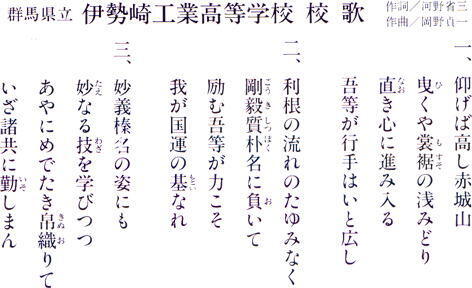 群馬県立 伊勢崎工業高等学校 校歌
作詞／河野省三
作曲／岡野貞一
一、仰げば高し赤城山
曳くや裳裾の浅みどり
直き心に進み入る
吾等が行手はいと広し
二、利根の流れのたゆみなく
剛毅質朴名に負いて
励む吾等が力こそ
我が国運の基なれ
三、妙義榛名の姿にも
妙なる技を学びつつ
あやにめでたき帛織りて
いざ諸共に勤しまん